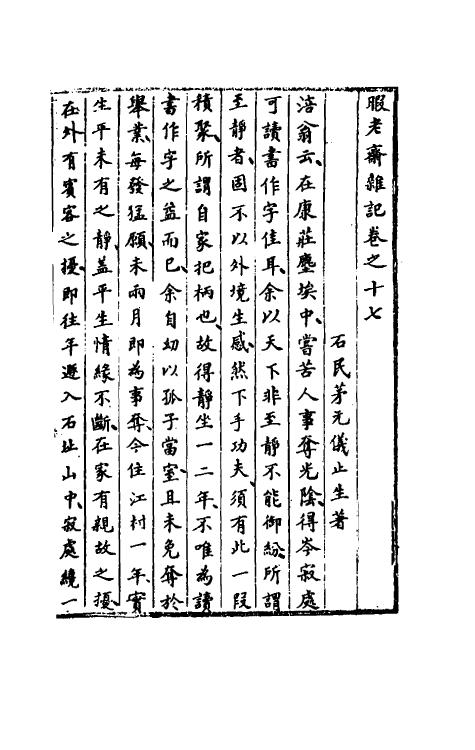 暇老齋雜記卷之十七
石民茅元儀止生著
涪翁云、在康莊塵埃中、嘗苦人事奪光陰、得岑寂處
可讀書作字佳耳、余以天下非至靜不能御紛、所謂
至靜者、固不以外境生感、然下手功夫、須有此一段
積聚、所謂自家把柄也、故得靜坐一二年、不唯為讀
書作字之益而已、余自幼以孤子當室、且未免奪於
舉業、每發猛願、未兩月即為事奪、今住江村一年、實
生平未有之靜、蓋平生情緣不斷、在家有親故之擾、
在外有賓客之擾、即往年遯入石址山中、寂處纔一